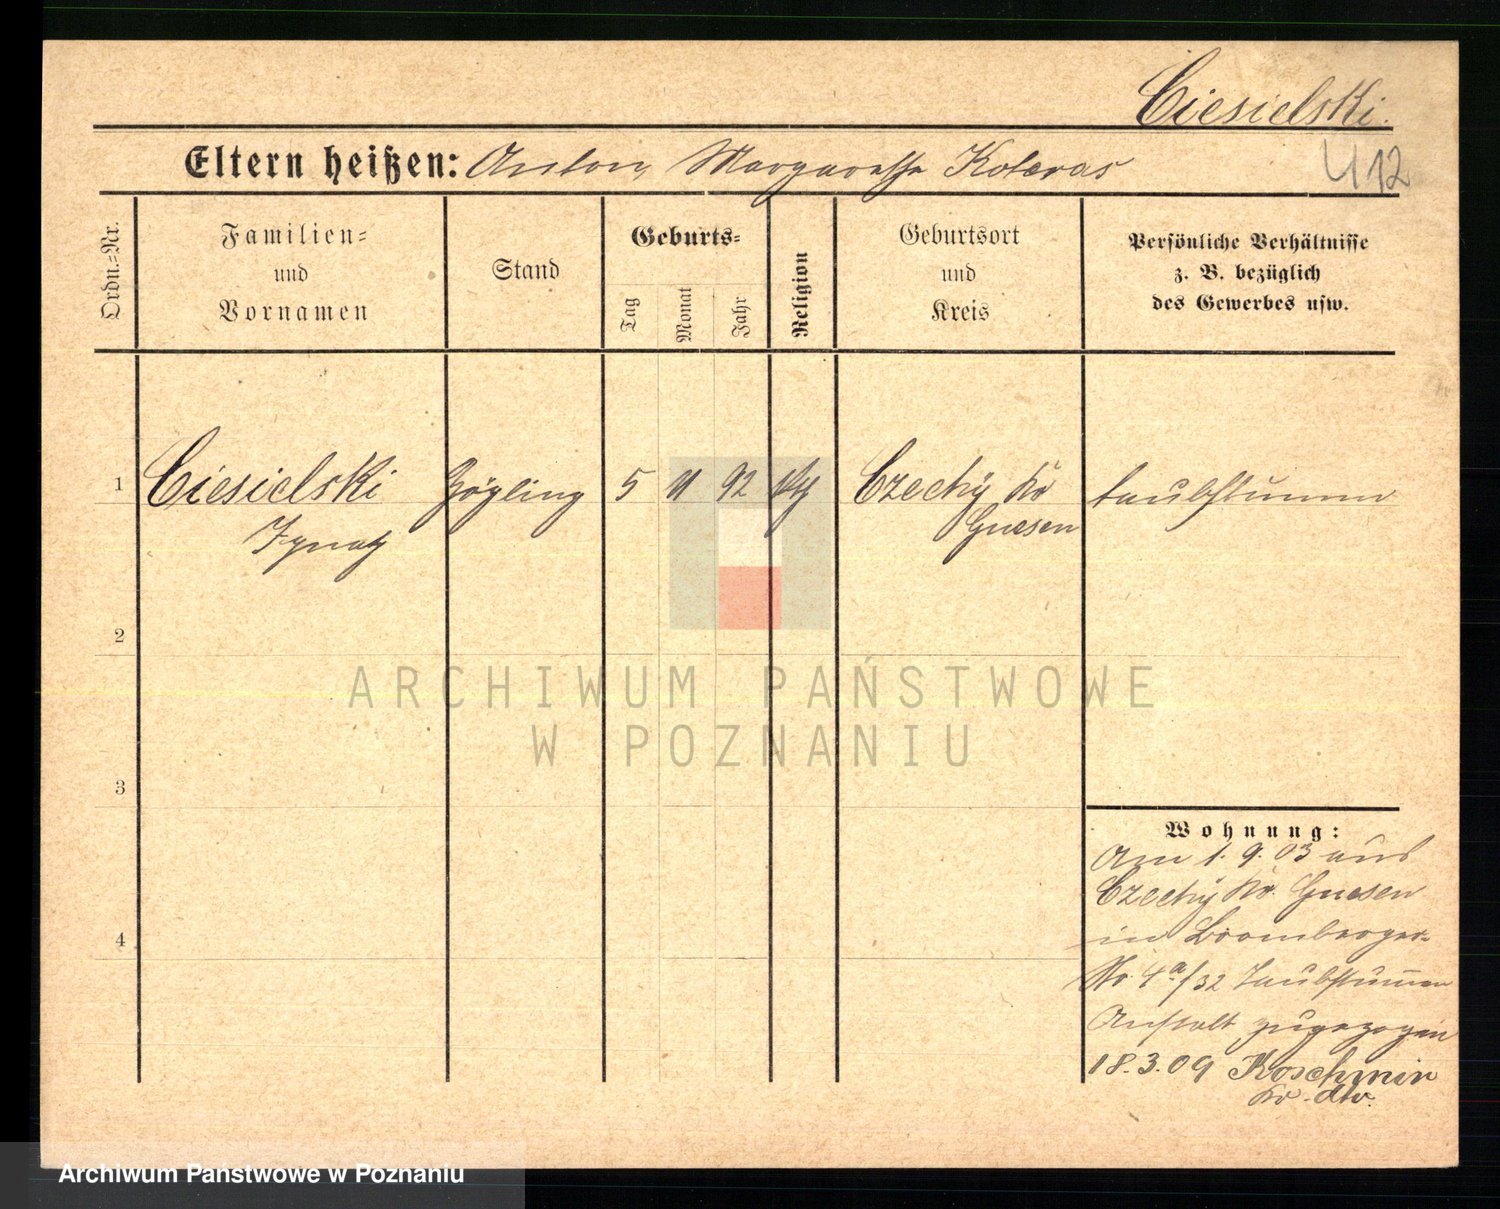 Ciesielski.
Eltern heißen: Anton, Margarethe Koteras
412
Ordn.=Nr.
Familien=
und
Vornamen
Stand
Geburts=
Tag
Monat
Jahr
Religion
Geburtsort
und
Kreis
Persönliche Verhältnisse
z. B. bezüglich
des Gewerbes usw.
1 Ciesielski Zögling 5 11 92 Czechy Kr taubstumm
Ignatz Gnesen
2
3
4
Wohnung:
Am 1. 9. 03 aus
Czechy Kr. Gnesen
in Bromberger-
Str. 4a/32 Taubstummen
Anstalt zugezogen
18.3.09 Koschmin
Kr. dto.
ARCHIWUM PAŃSTWOWE
W POZNANIU
Archiwum Państwowe w Poznaniu